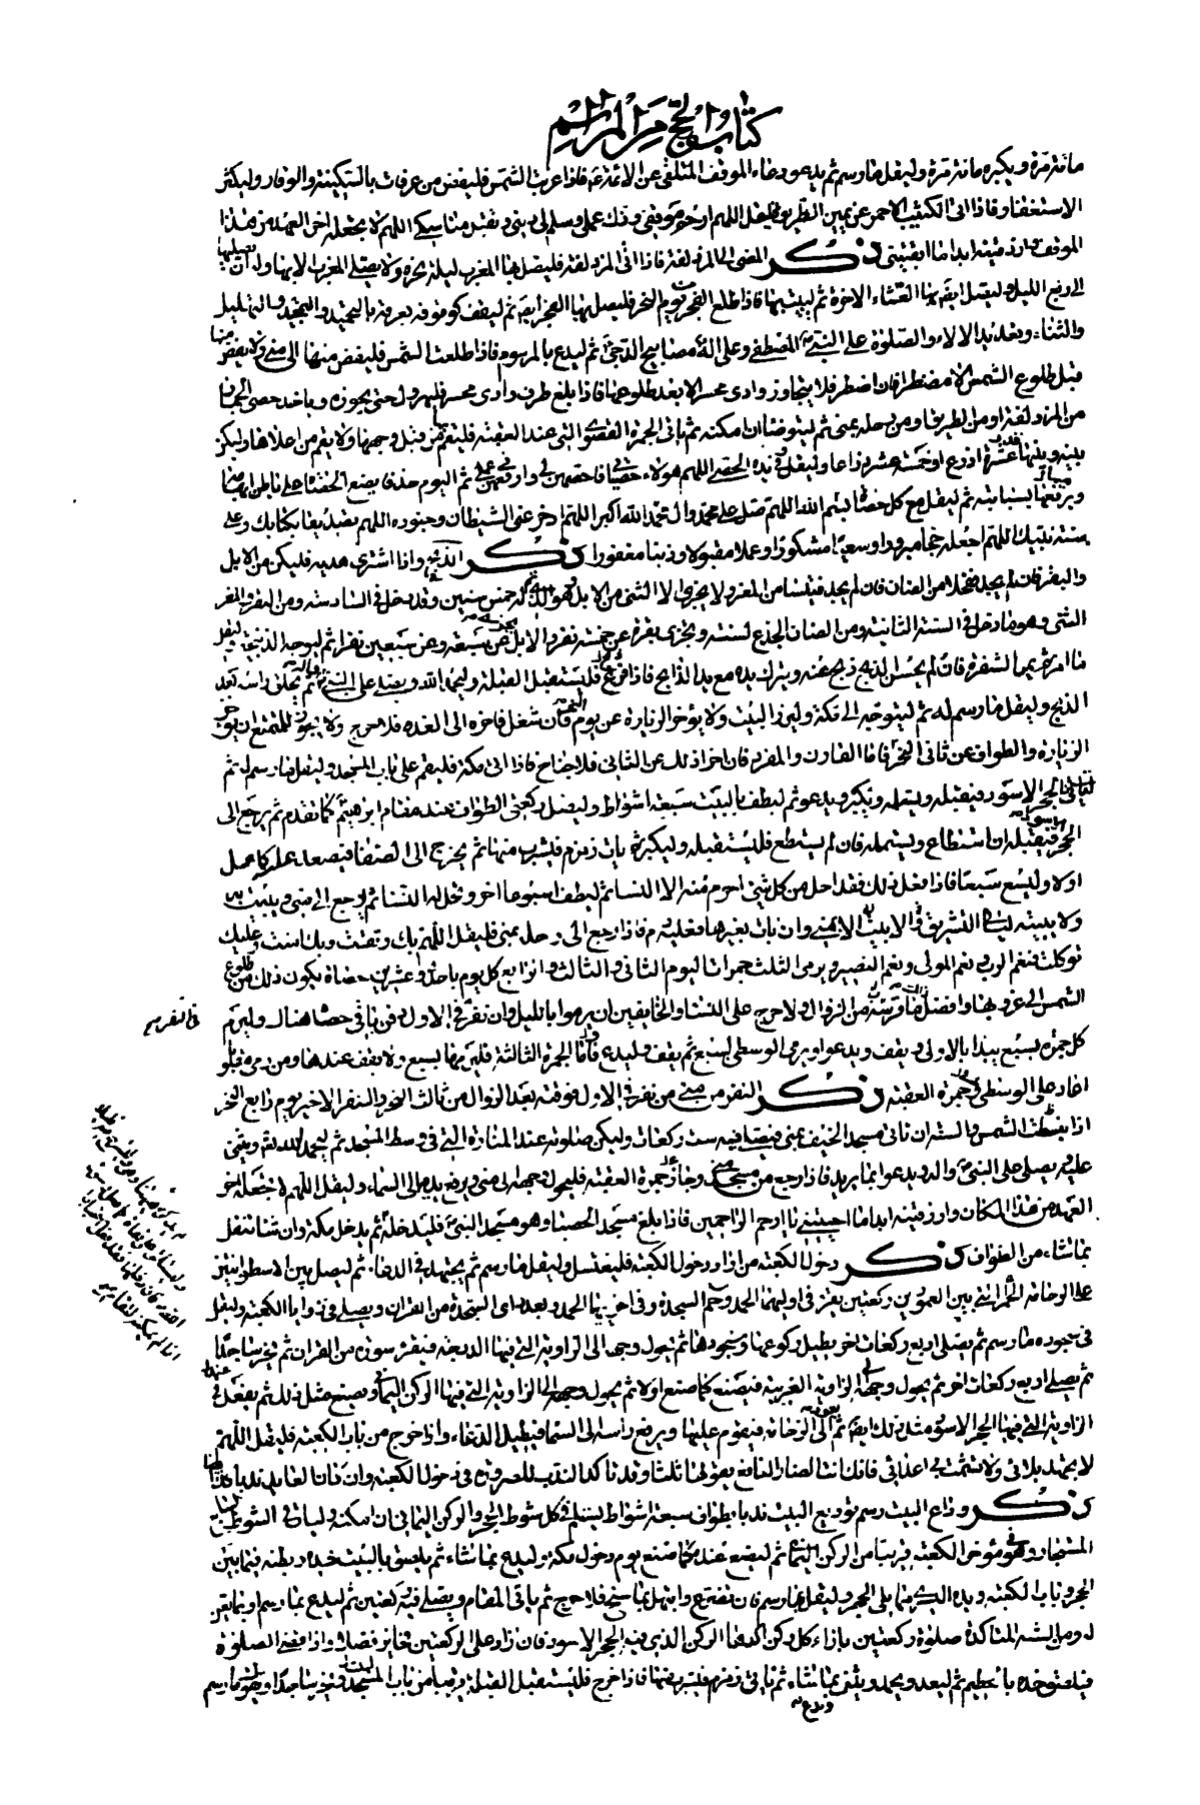 كتاب الحج من المراسم
مائة مرة ويكبره مائة مرة وليقل ما رسم ثم يدعو دعاء الموقف المتلقى عن الائمة فاذا غربت الشمس فليفض من عرفات بالسكينة والوقار وليكثر
الاستغفار فاذا اتى الكثيب الاحمر عن يمين الطريق فليقل اللهم ارحم موقفي وزك عملي وسلم لي ديني وتقبل مناسكي اللهم لا تجعله اخر العهد من هذا
الموقف وارزقنيه ابدا ما ابقيتني ذكر المضي الى المزدلفة فاذا اتى المزدلفة فليصل بها المغرب ليلة النحر ولا يصلي المغرب الا بها وله ان يصليها
الى ربع الليل وليصل ايضا بها العشاء الاخرة ثم ليبت بها فاذا طلع الفجر يوم النحر فليصل بها الفجر ثم ليقف كوقوفه بعرفة بالتحميد والتمجيد والتهليل
والثناء وتعديد الالاء والصلوة على النبي المصطفى وعلى اله مصابيح الدجى ثم ليدع بالمرسوم فاذا طلعت الشمس فليفض منها الى منى ولا يفض منها
قبل طلوع الشمس الا مضطرا فان اضطر فلا يتجاوز وادى محسر الا بعد طلوعها فاذا بلغ طرف وادى محسر فليهرول حتى يجوزه وياخذ حصى الجمار
من المزدلفة او من الطريق او من رحله بمنى ثم ليتوضأ ان امكنه ثم ياتي الجمرة القصوى التي عند العقبة فليقم من قبل وجهها ولا يقم من اعلاها وليكن
بينه وبينها قدر عشرة اذرع او خمسة عشر ذراعا وليقل وفي يده الحصى اللهم هؤلاء حصياتي فاحصهن لي وارفعهن في عملي ثم اليوم حذفا يضع الحصاة على باطن ابهامه
ويرفعها بسبابته ثم ليقل مع كل حصاة بسم الله اللهم صل على محمد وال محمد الله اكبر اللهم ادحر عني الشيطان وجنوده اللهم تصديقا بكتابك وعلى
سنة نبيك اللهم اجعله حجا مبرورا وسعيا مشكورا وعملا مقبولا وذنبا مغفورا ذكر الذبح واذا اشترى هديه فليكن من الابل
والبقر فان لم يجد فحلا من الضان فان لم يجد فتيسا من المعز ولا يجزي الا الثني من الابل وهو الذي له خمس سنين وقد دخل في السادسة ومن البقر والمعز
الثني وهو ما دخل في السنة الثانية ومن الضان الجذع لسنته وتجزى بقرة عن خمسة نفر والابل عن سبعة وعن سبعين نفرا ثم ليوجه الذبيحة وليقل
ما امر ثم يمر الشفرة فان لم يحسن الذبح ذبح عنه ويترك يده مع يد الذابح فاذا فرغ فليستقبل القبلة وليحمد الله ويصلي على النبي واله ثم يحلق راسه بعد
الذبح وليقل ما رسم له ثم ليتوجه الى مكة وليزر البيت ولا يؤخر الزيارة عن يوم النحر فان شغل فاخره الى الغد فلا حرج ولا يجوز للمتمتع ان يؤخر
الزيارة والطواف عن ثاني النحر فاما القارن والمفرد فان اخرا ذلك عن الثاني فلا جناح فاذا اتى مكة فليقم على باب المسجد وليقل ما رسم له ثم
لياتي الحجر الاسود فيقبله ويستلمه ويكبر ويدعو ثم ليطف بالبيت سبعة اشواط وليصل ركعتي الطواف عند مقام ابرهيم كما تقدم ثم يرجع الى
الحجر الاسود فيقبله ان استطاع ويستلمه فان لم يستطع فليستقبله وليكبر ثم يات زمزم فليشرب منها ثم يخرج الى الصفا فيصعد عليه كما عمل
اولا وليسع سبعا فاذا فعل ذلك فقد احل من كل شيء احرم منه الا النساء ثم ليطف اسبوعا اخر وتحل له النساء ثم ليرجع الى منى ويبيت بها
ولا يبيت ليالي التشريق الا بمنى وان بات بغيرها فعليه دم فاذا رجع الى رحله بمنى فليقل اللهم بك وثقت وبك امنت وعليك
توكلت فنعم الرب ونعم المولى ونعم النصير ويرمى الثلث جمرات اليوم الثاني والثالث والرابع كل يوم باحدى وعشرين حصاة يكون ذلك من طلوع
الشمس الى غروبها وافضله ما قرب من الزوال ولا حرج على النساء والخائفين ان يرموا بالليل وان نفر في الاول دفن باقي حصاه هناك وليرم
في النفر
كل جمرة بسبع يبدا بالاولى ويقف ويدعو ويرمى الوسطى بسبع ثم يقف وليدع فاما الجمرة الثالثة فليرمها بسبع ولا يقف عندها ومن رمى مقلوبا
اعاد على الوسطى وجمرة العقبة ذكر النفر من منى من نفر في الاول فوقته بعد الزوال من ثالث النحر والنفر الاخير يوم رابع النحر
اذا ابيضت الشمس والسنة ان ياتى مسجد الخيف بمنى فيصلي فيه ست ركعات وليكن صلوته عند المنارة التي في وسط المسجد ثم ليحمد الله ويثني
عليه ويصلي على النبي واله ويدعو بما يريد فاذا رجع من مسجد منى وجاز جمرة العقبة فليحول وجهه الى منى ويرفع يديه الى السماء وليقل اللهم لا تجعله اخر
العهد من هذا المكان وارزقنيه ابدا ما احييتني يا ارحم الراحمين فاذا بلغ مسجد الحصباء وهو مسجد النبي فليدخله ثم يدخل مكة وان شاء تنفل
بما شاء من الطواف ذكر دخول الكعبة من اراد دخول الكعبة فليغتسل وليقل ما رسم ثم يجتهد في الدعاء ثم ليصل بين الاسطوانتين
على الرخامة الحمراء التي بين العمودين ركعتين يقرا في اوليهما الحمد وحم السجدة وفي اخريهما الحمد وبعدد اى السجدة من القران ويصلي في زوايا الكعبة وليقل
في سجوده ما رسم ثم يصلي اربع ركعات اخر يطيل ركوعها وسجودها ثم يحول وجهه الى الزاوية التي فيها الدرجة فيقرا سورة من القران ثم يخر ساجدا
ثم يصلي اربع ركعات اخر ثم يحول وجهه الى الزاوية الغربية فيصنع كما صنع اولا ثم يحول وجهه الى الزاوية التي فيها الركن اليماني ويصنع مثل ذلك ثم يفعل في
الزاوية التي فيها الحجر الاسود مثل ذلك ايضا ثم يعود الى الرخامة فيقوم عليها ويرفع راسه الى السماء فيطيل الدعاء واذا خرج من باب الكعبة فليقل اللهم
لا تجهد بلائي ولا تشمت بي اعدائي فانك انت الضار النافع يقولها ثلثا وقد تاكد الندب للصرورة في دخول الكعبة وان كان لغايره ندبا
ذكر وداع البيت رسم توديع البيت ندبا يطوف سبعة اشواط يستلم في كل شوط الحجر والركن اليماني ان امكنه وليات في الشوط السابع
المستجار وهو مؤخر الكعبة قريبا من الركن اليماني ثم ليصنع عنده كما صنع يوم دخول مكة وليدع بما شاء ثم يلصق بالبيت خده وبطنه فيما بين
الحجر وباب الكعبة ويده اليسرى مما يلي الحجر وليقل ما رسم فان تضرع وابتهل بما سنح فلا حرج ثم ياتي المقام ويصلي فيه ركعتين ثم ليدع بما رسم او بما يعن
له ومن السنة المتاكدة صلوة ركعتين بازاء كل ركن اخرها الركن الذي فيه الحجر الاسود فان زاد على الركعتين فجايز فضلا واذا قضى الصلوة
فليلصق خده بالحطيم ثم ليعد ويحمد ويثني بما شاء ثم ياتي زمزم فليشرب منها فاذا خرج فليستقبل القبلة قريبا من باب المسجد فيخر ساجدا وليقل ما رسم